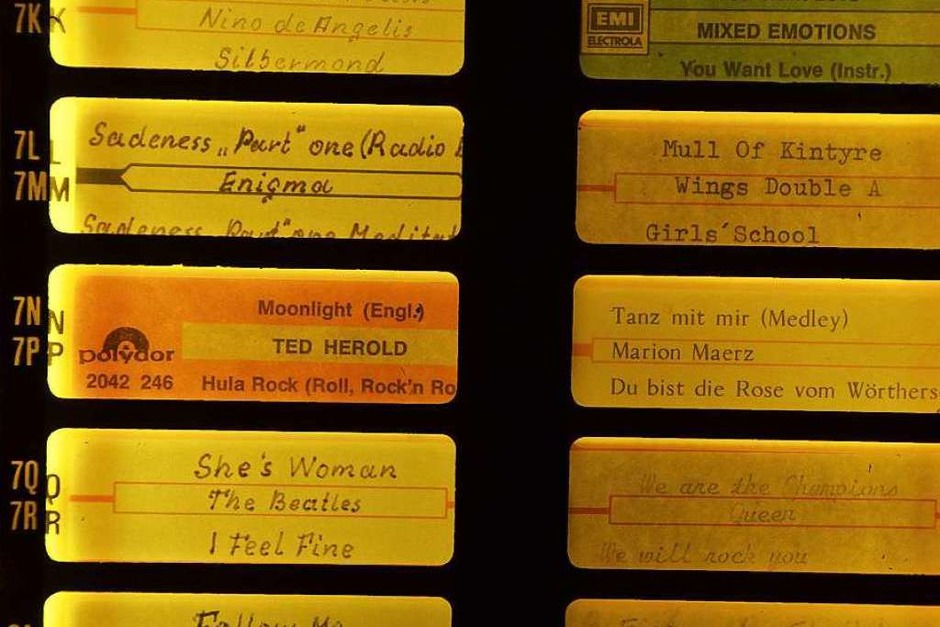 7K K
Nino de Angelis
Silbermond
EMI
ELECTROLA
MIXED EMOTIONS
You Want Love (Instr.)
7L L
7M M
Sadeness „Part" one (Radio
Enigma
Sadeness „Part" one Meditat
Mull Of Kintyre
Wings Double A
Girls´School
7N N
7P P
polydor
2042 246
Moonlight (Engl.)
TED HEROLD
Hula Rock (Roll, Rock'n Ro
Tanz mit mir (Medley)
Marion Maerz
Du bist die Rose vom Wörthers
7Q Q
7R R
She's Woman
The Beatles
I Feel Fine
We are the Champions
Queen
We will rock you
Follow Me